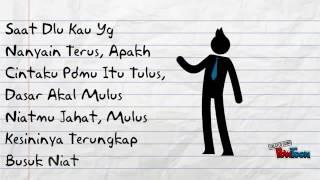 Saat Dlu Kau Yg
Nanyain Terus, Apakh
Cintaku Pdmu Itu Tulus,
Dasar Akal Mulus
Niatmu Jahat, Mulus
Kesininya Terungkap
Busuk Niat
PowToon